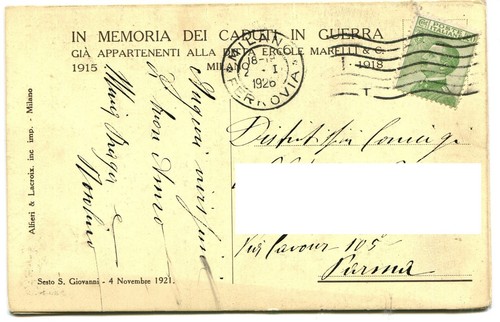 IN MEMORIA DEI CADUTI IN GUERRA
GIÀ APPARTENENTI ALLA DITTA ERCOLE MARELLI & C.
1915 MILANO 1918
MILANO
18-19
2 - I
1926
FERROVIA
POSTE ITALIANE
T
Auguri vivissimi
di buon Anno
Maria
e
Distintissimi Coniugi
Via Cavour 105
Parma
Alfieri & Lacroix. inc imp. - Milano
Sesto S. Giovanni - 4 Novembre 1921.